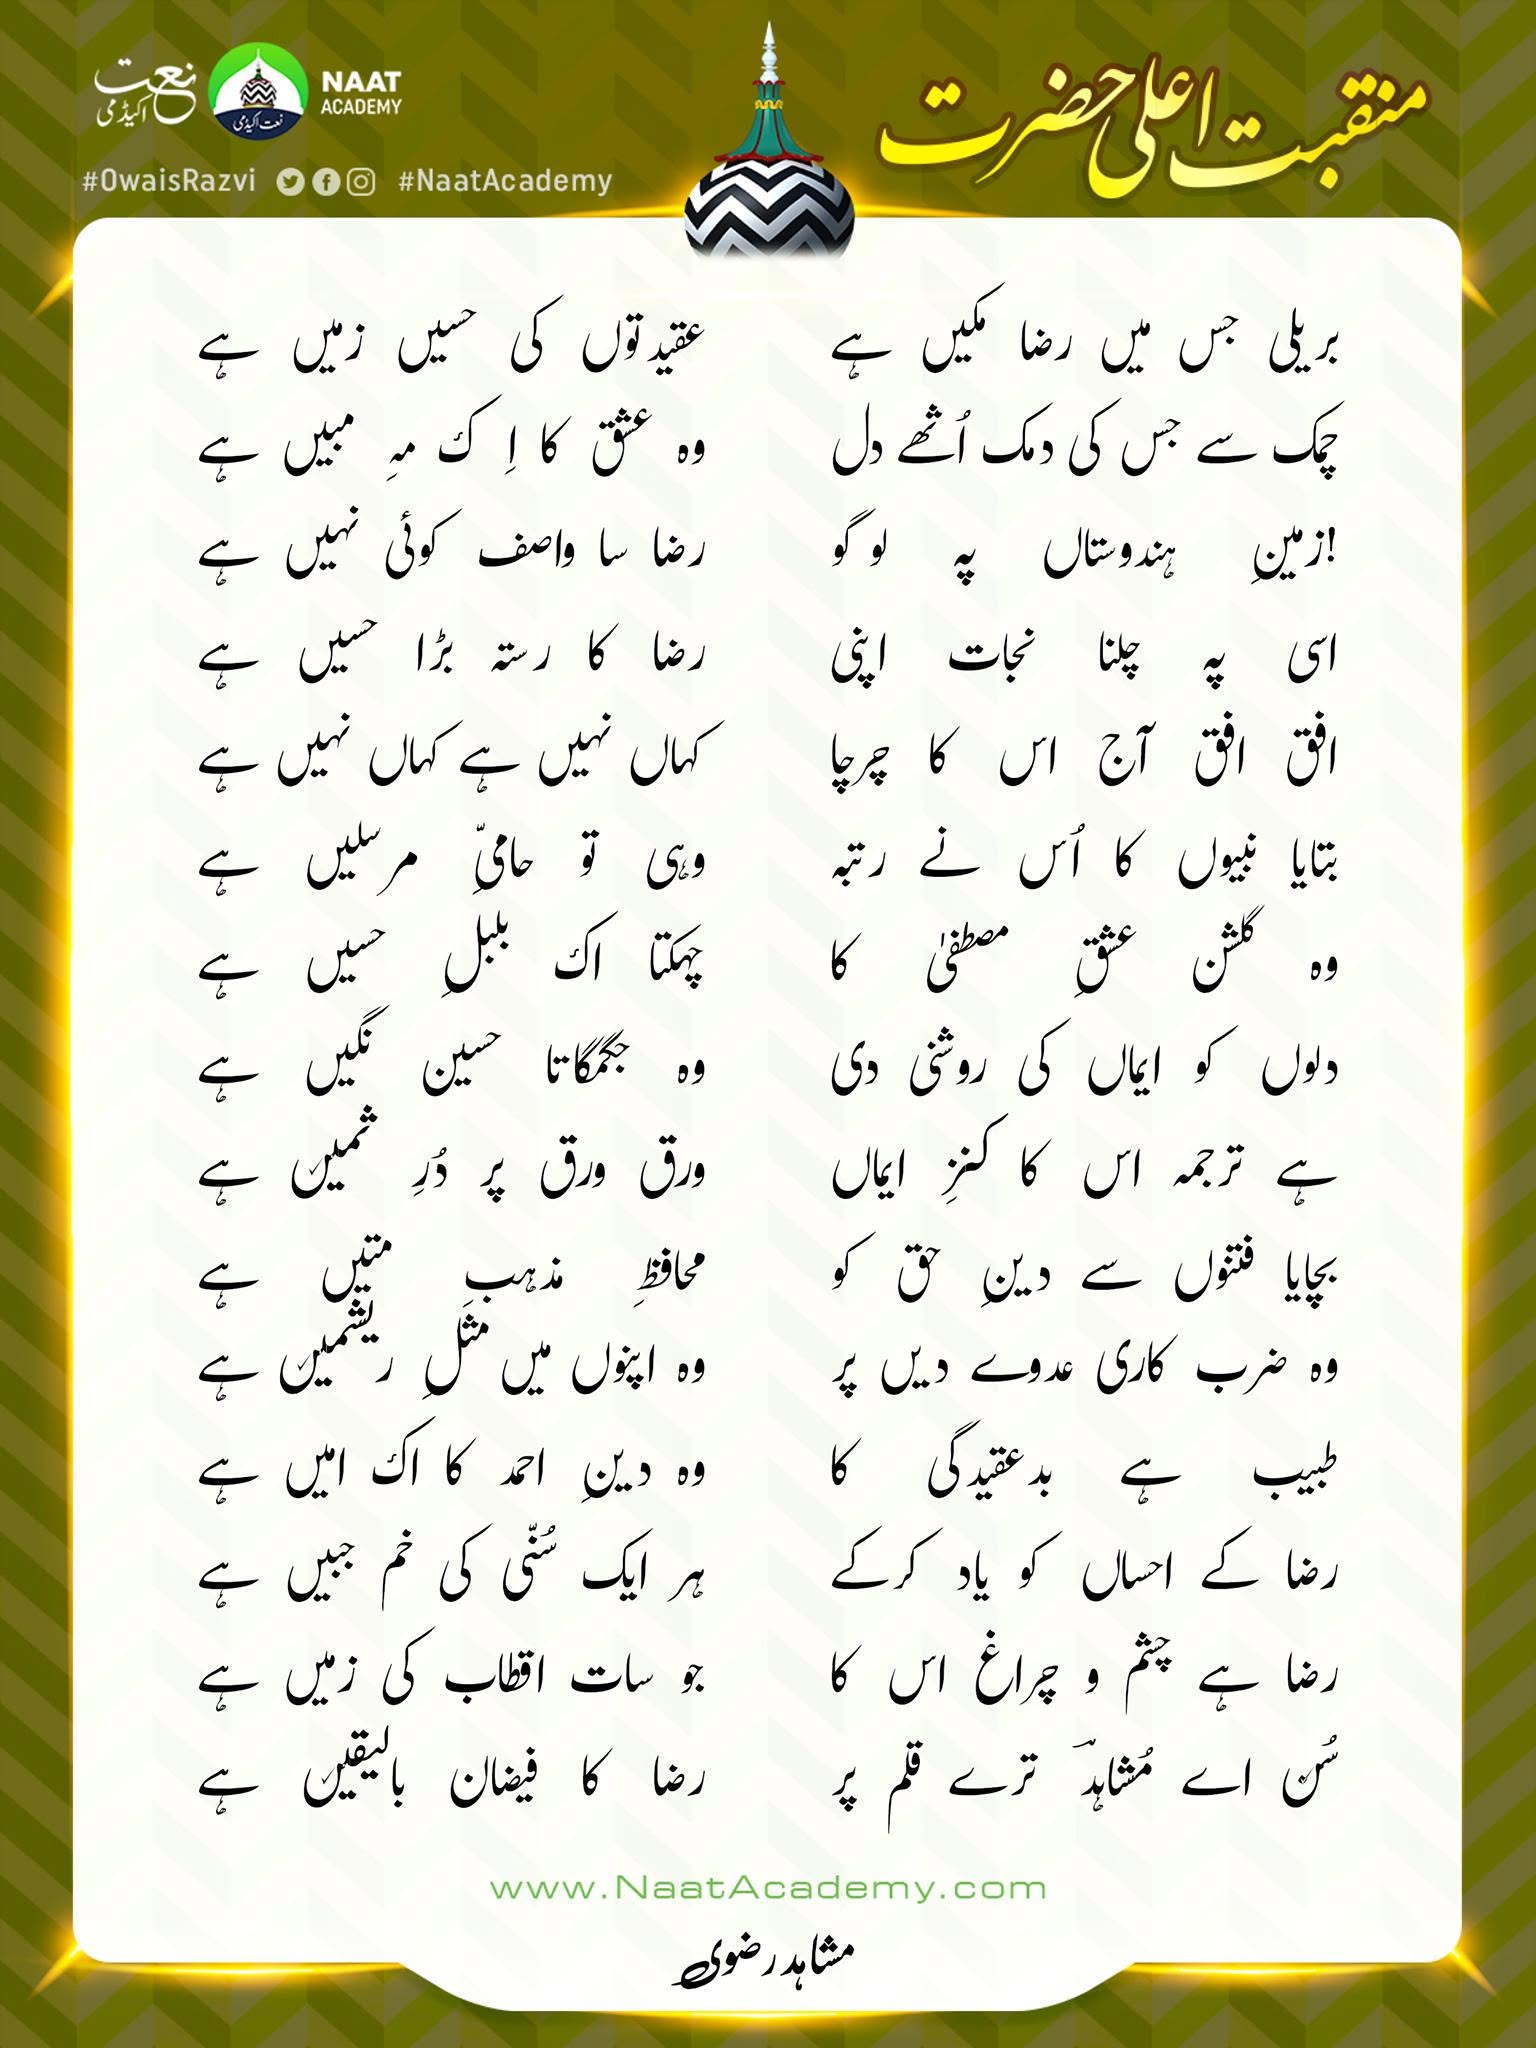 نعت اکیڈمی
نعت اکیڈمی
NAAT
ACADEMY
منقبت اعلیٰ حضرت
#OwaisRazvi #NaatAcademy
بریلی جس میں رضا مکیں ہے عقیدتوں کی حسیں زمیں ہے
چمک سے جس کی دمک اُٹھے دل وہ عشق کا اِک مہِ مبیں ہے
!زمینِ ہندوستاں پہ لوگو رضا سا واصف کوئی نہیں ہے
اسی پہ چلنا نجات اپنی رضا کا رستہ بڑا حسیں ہے
افق افق آج اس کا چرچا کہاں نہیں ہے کہاں نہیں ہے
بتایا نبیوں کا اُس نے رتبہ وہی تو حامیِّ مرسلیں ہے
وہ گلشن عشقِ مصطفیٰ کا چہکتا اک بلبلِ حسیں ہے
دلوں کو ایماں کی روشنی دی وہ جگمگاتا حسین نگیں ہے
ہے ترجمہ اس کا کنزِ ایماں ورق ورق پر دُرِ ثمیں ہے
بچایا فتنوں سے دینِ حق کو محافظِ مذہبِ متیں ہے
وہ ضرب کاری عدوے دیں پر وہ اپنوں میں مثلِ ریشمیں ہے
طبیب ہے بدعقیدگی کا وہ دینِ احمد کا اک امیں ہے
رضا کے احساں کو یاد کرکے ہر ایک سُنّی کی خم جبیں ہے
رضا ہے چشم و چراغ اس کا جو سات اقطاب کی زمیں ہے
سُن اے مُشاہدؔ ترے قلم پر رضا کا فیضان بالیقیں ہے
www.NaatAcademy.com
مشاہد رضوی